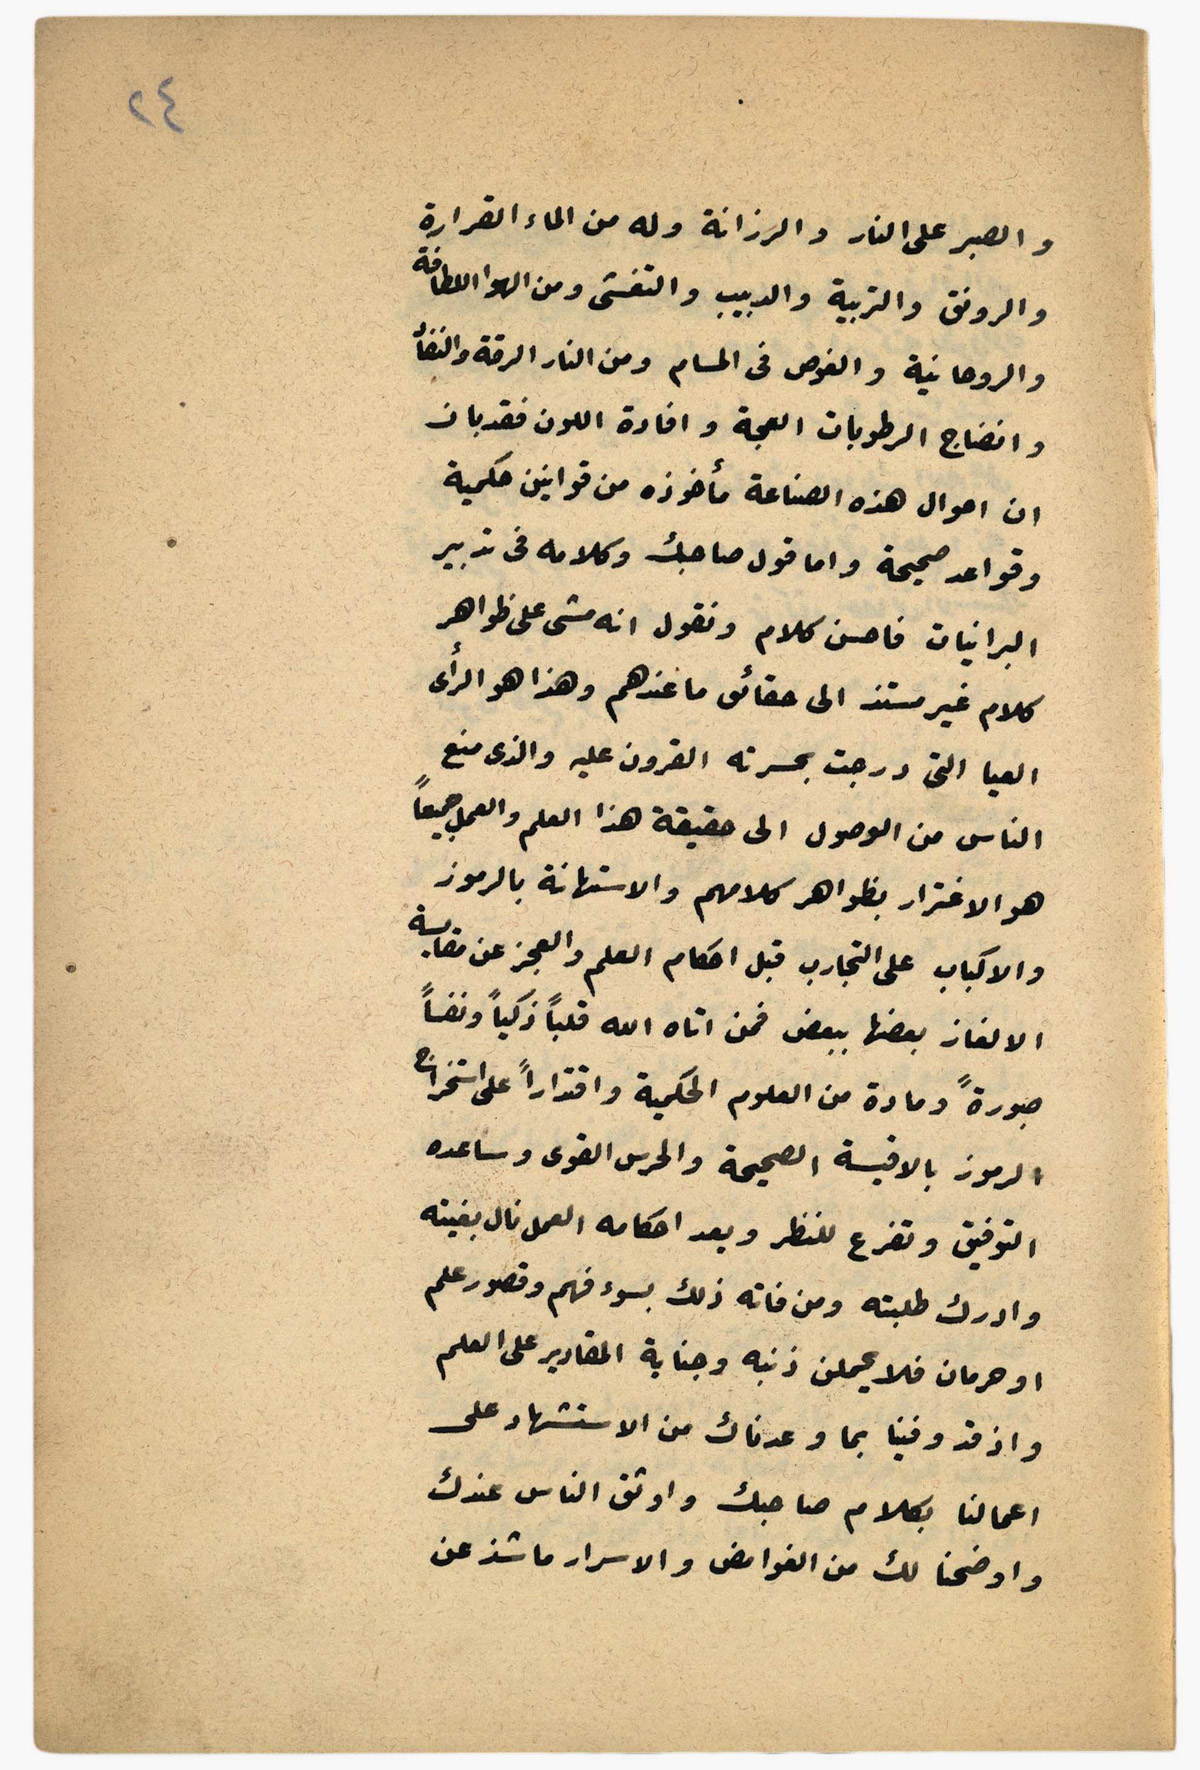 ٢٤
و الصبر على النار و الرزانة وله من الماء القرارة
والرونق والتربية والدبيب والتفشى ومن الهوا اللطافة
والروحانية و الغوص فى المسام ومن النار الرقة والنفاذ
و انضاج الرطوبات العجة و افادة اللون فقد بان
ان احوال هذه الصناعة مأخوذه من قوانين حكمية
وقواعد صحيحة و اما قول صاحبك وكلامه فى تدبير
البرانيات فاحسن كلام ونقول انه مشى على ظواهر
كلام غير مستند الى حقائق ما عندهم وهذا هو الرأى
العيا التى درجت بحسرته القرون عليه والذى منع
الناس من الوصول الى حقيقة هذا العلم والعمل جميعاً
هو الاغترار بظواهر كلامهم والاستهانة بالرموز
والاكباب على التجارب قبل احكام العلم والعجز عن مقايسة
الالغاز بعضها ببعض فمن اتاه الله قلباً ذكياً ونفساً
صبورةً ومادة من العلوم الحكمية واقتداراً على استخراج
الرموز بالاقيسة الصحيحة والحرس القوى وساعده
التوفيق وتفرع للنظر وبعد احكامه العمل نال بغيته
وادرك طلبته ومن فاته ذلك بسوء فهم وقصور علم
او حرمان فلا يحملن ذنبه وجناية المقادير على العلم
و اذ قد وفينا بما وعدناك من الاستشهاد على
اعمالنا بكلام صاحبك و اوثق الناس عندك
و اوضحنا لك من الغوامض و الاسرار ما شذ عن